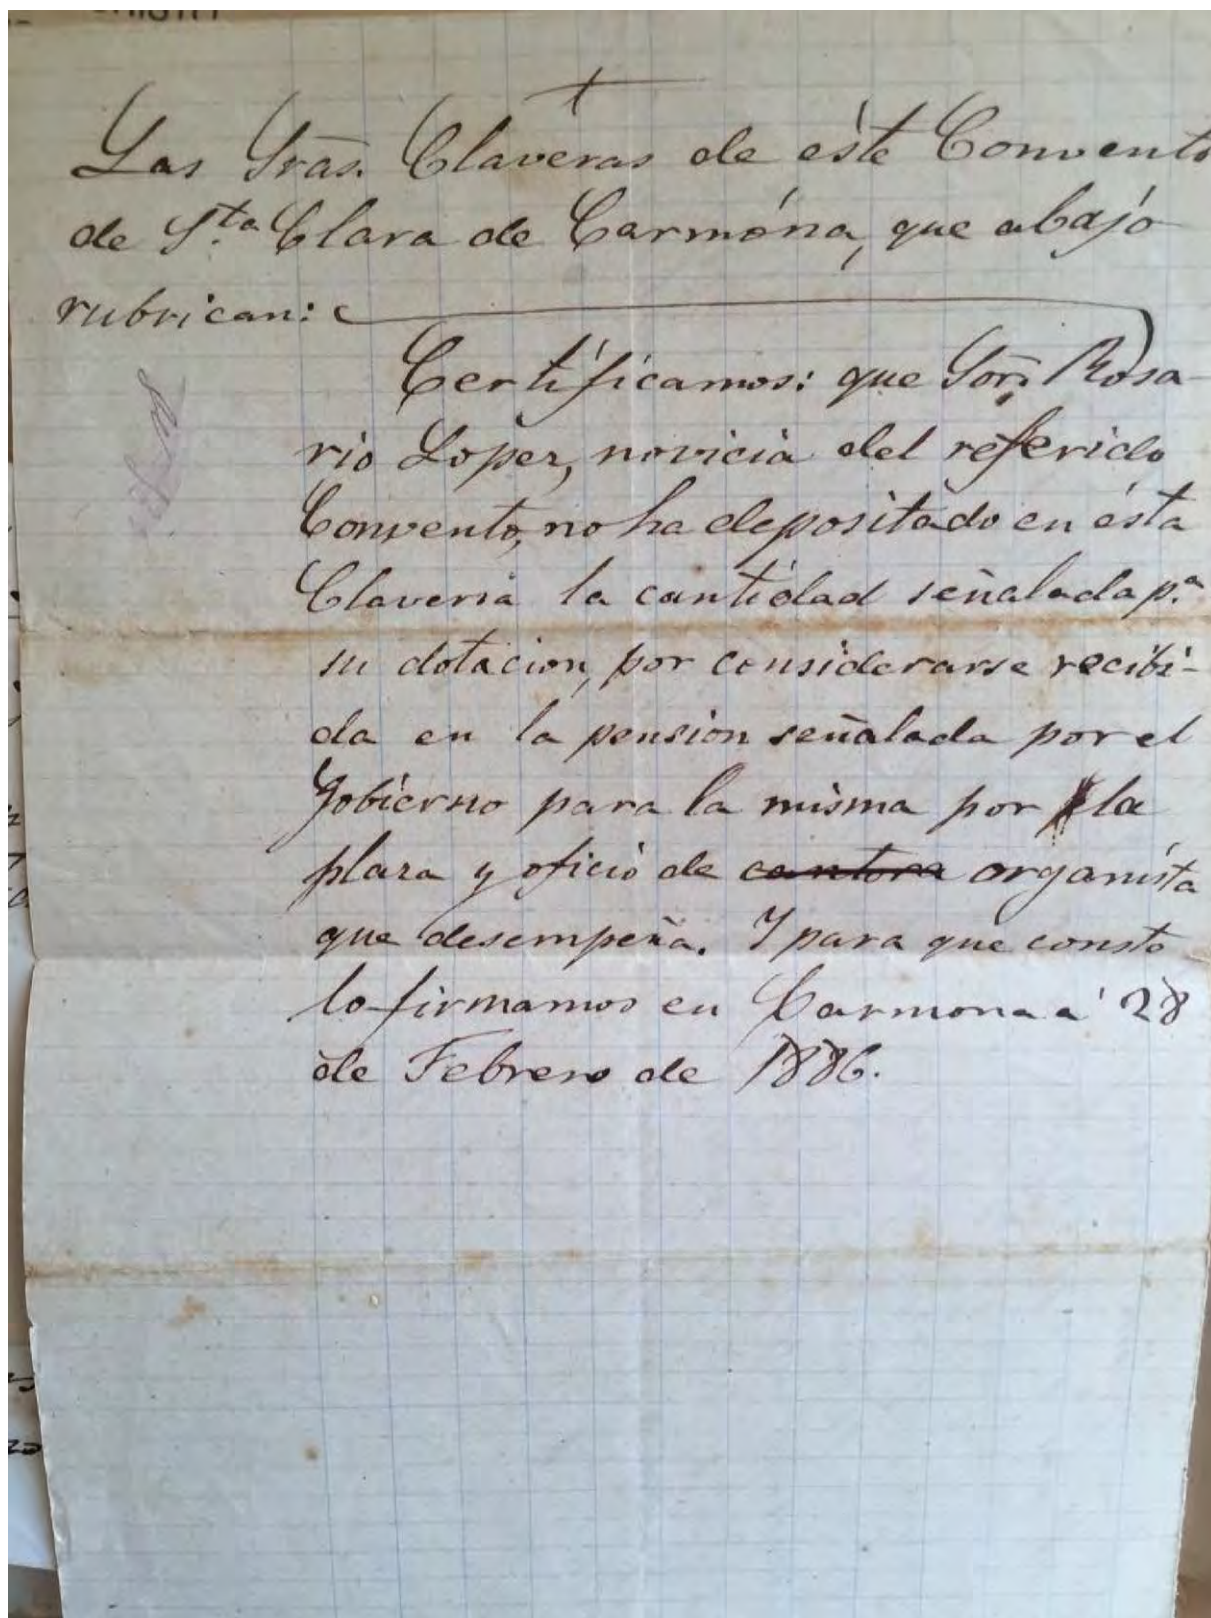 Las Sras. Claveras de éste Convento
de S.ta Clara de Carmóna, que abajo
rubrican:
Certificamos: que Sor Rosa-
rio Lopez, novicia del referido
Convento, no ha depositado en ésta
Claveria la cantidad señalada p.a
su dotacion, por considerarse recibi-
da en la pension señalada por el
Gobierno para la misma por la
plaza y oficio de cantora organista
que desempeña. Y para que conste
lo firmamos en Carmona a 28
de Febrero de 1886.